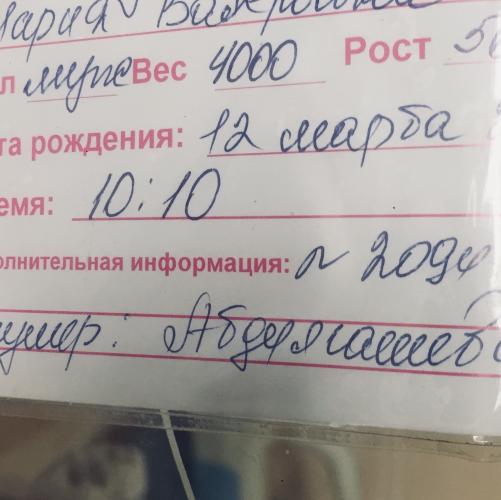 Мария Валеровна
л муж Вес 4000 Рост 5
та рождения: 12 марта
емя: 10:10
олнительная информация: ~ 2094
ушер: Абдулгашева